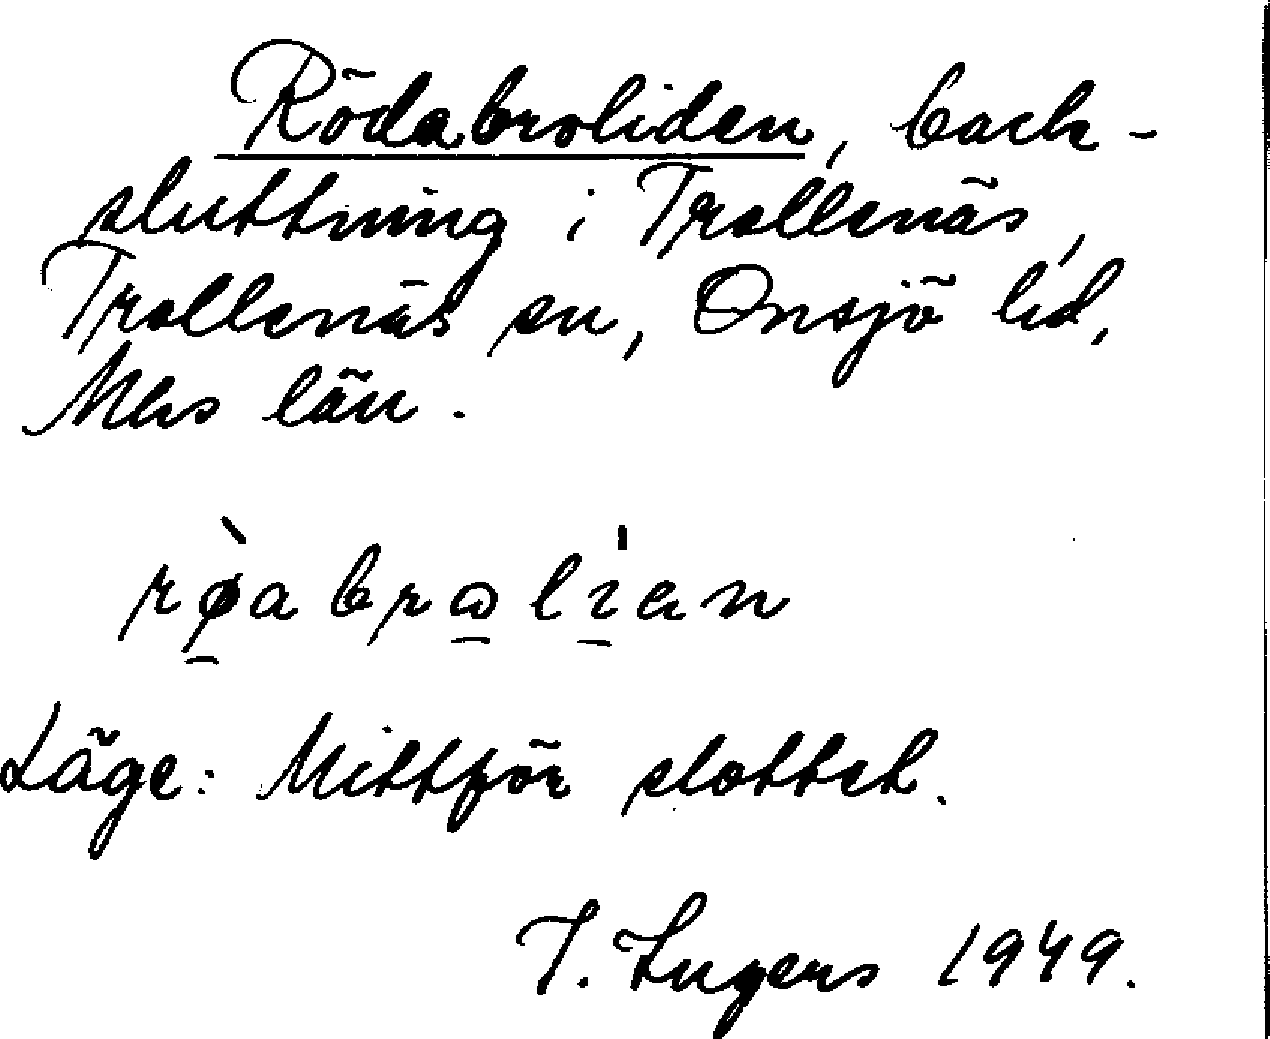 Rödabroliden, back-
sluttning i Trollenäs,
Trollenäs sn, Onsjö hd,
Mhs län.
rø̀abrωlı̍an
Läge: Mittför slottet.
J. Lugers 1949.